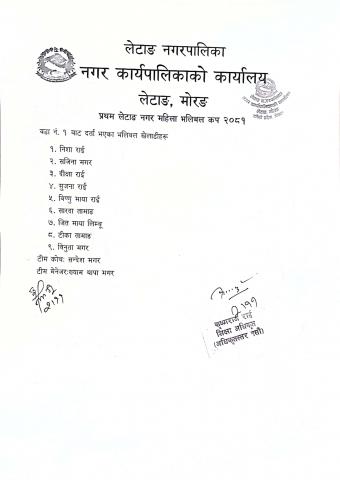 लेटाङ नगरपालिका
नगर कार्यपालिकाको कार्यालय
लेटाङ, मोरङ
प्रथम लेटाङ नगर महिला भलिबल कप २०८१
वडा नं. १ बाट दर्ता भएका भलिबल खेलाडीहरू
१. निशा राई
२. सजिना मगर
३. दीक्षा राई
४. सुजना राई
५. विष्णु माया राई
६. सारदा तामाङ
७. जित माया लिम्बू
८. टीका तामाङ
९. विनुता मगर
टीम कोच: सन्देश मगर
टीम मेनेजर:श्याम थापा मगर
राई
शिक्षा अधिकृत